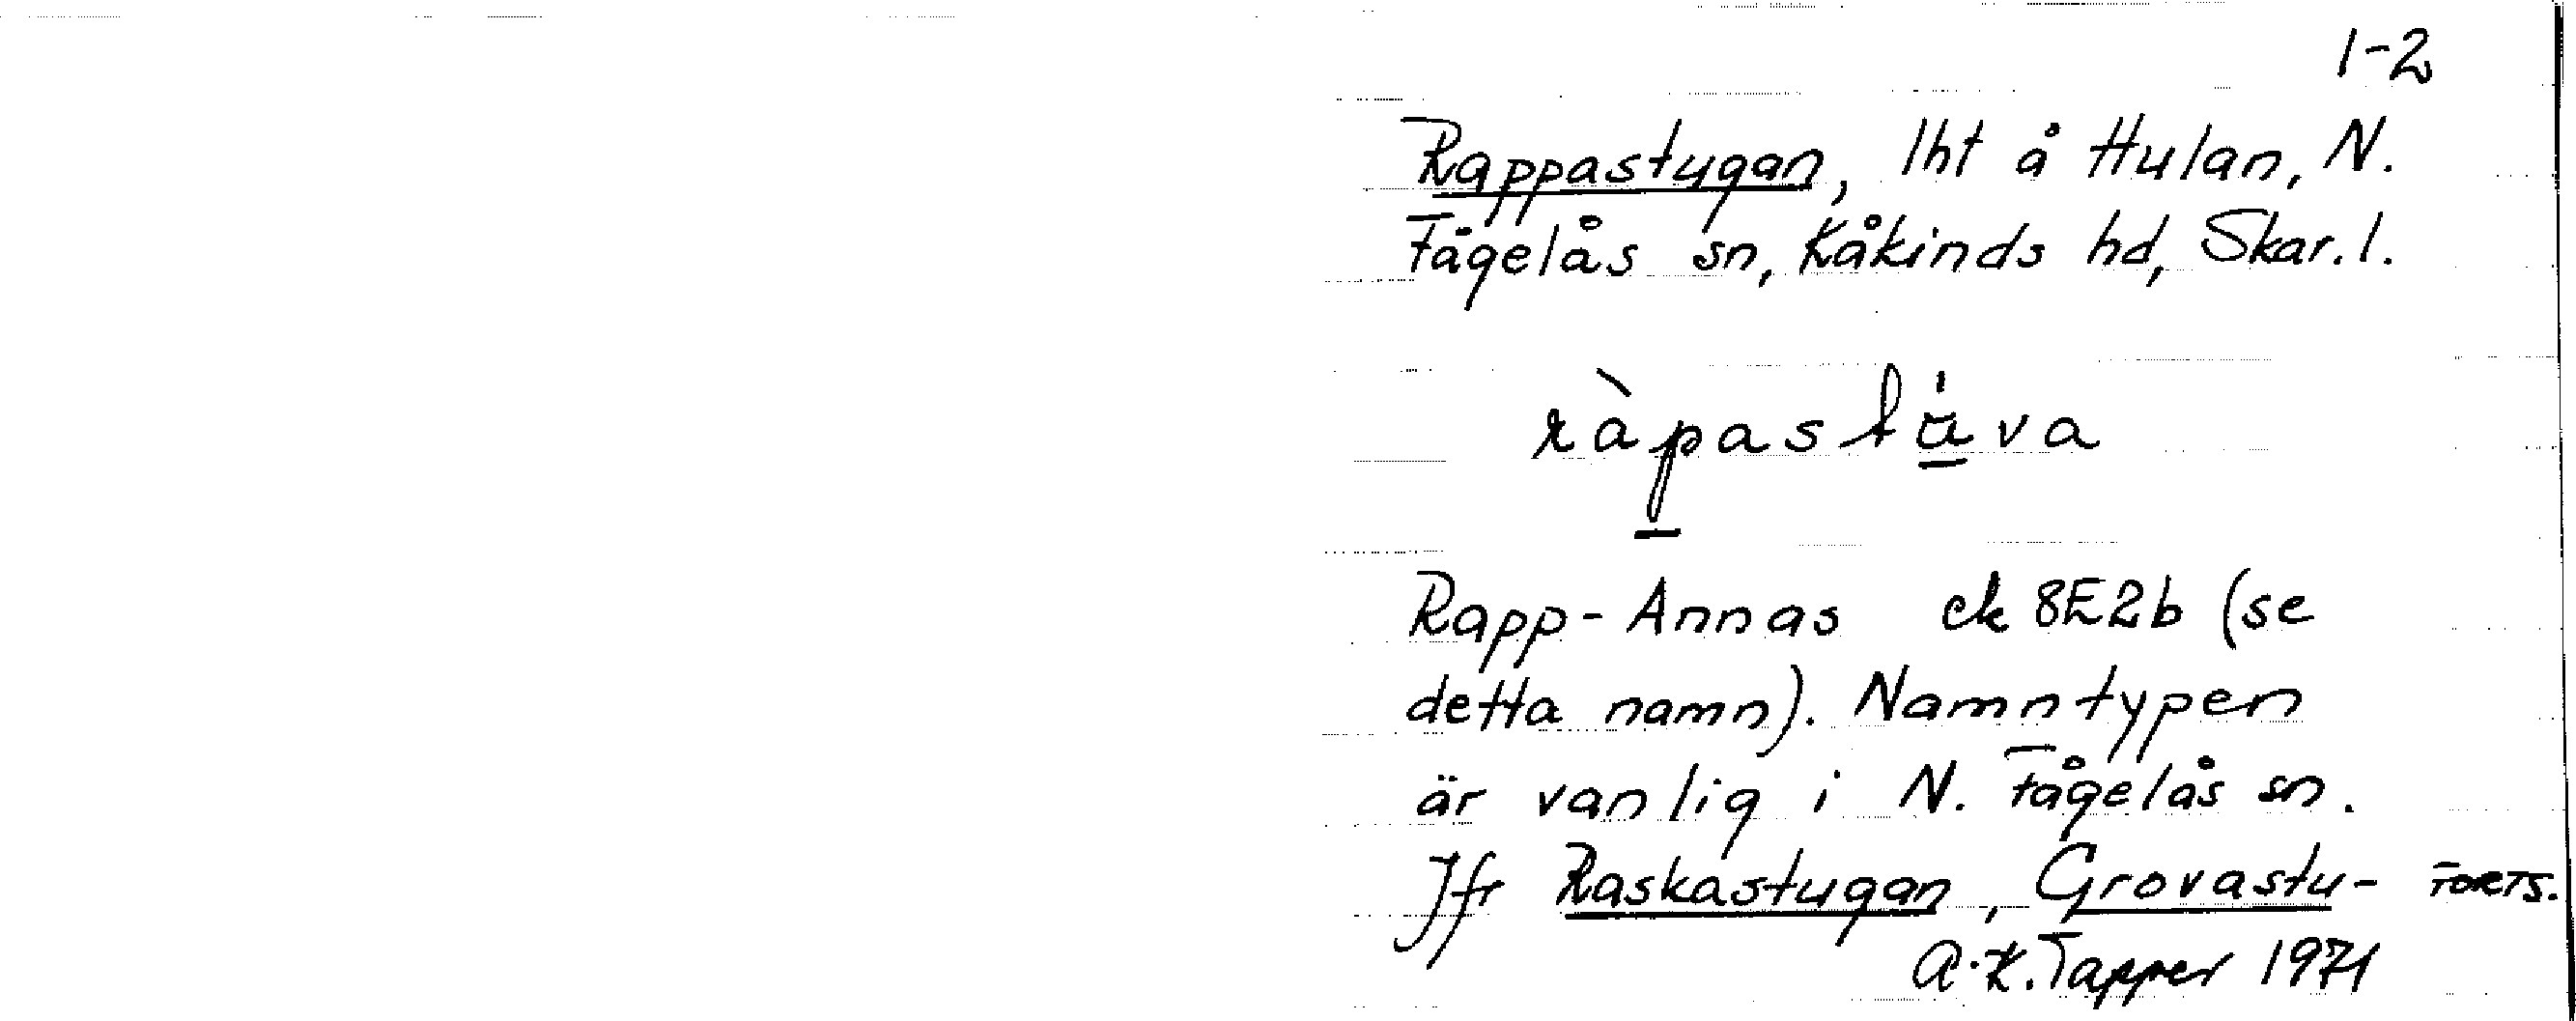 1-2
Rappastugan, lht å Hulan, N.
Fågelås sn, Kåkinds hd, Skar. l.
Rapp-Annas ek 8E2b (se
detta namn). Namntypen
är vanlig i N. Fågelås sn.
Jfr Raskastugan, Grovastu- FORTS.
A.K. Tapper 1971